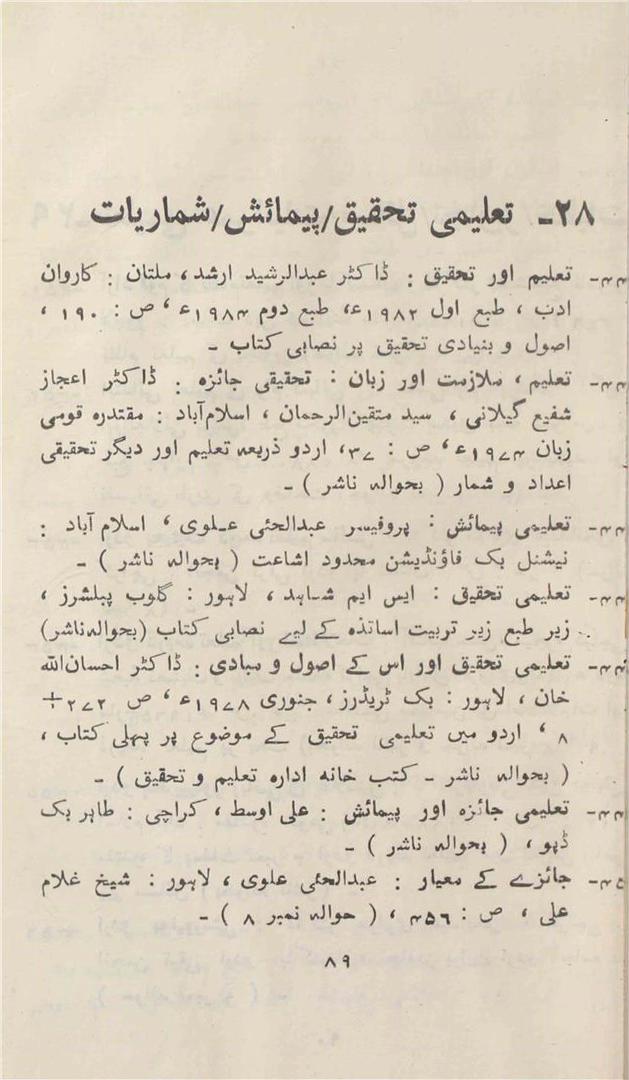 ۲۸۔ تعلیمی تحقیق/پیمائش/شماریات
تعلیم اور تحقیق : ڈاکٹر عبدالرشید ارشد، ملتان : کاروان
ادب ، طبع اول ۱۹۸۲ء، طبع دوم ۱۹۸۴ء ، ص : ۱۹۰ ،
اصول و بنیادی تحقیق پر نصابی کتاب ۔
تعلیم ، ملازمت اور زبان : تحقیقی جائزہ : ڈاکٹر اعجاز
شفیع گیلانی ، سید متقین الرحمان ، اسلام آباد : مقتدرہ قومی
زبان ۱۹۷۴ء ، ص : ۳۷، اردو ذریعہ تعلیم اور دیگر تحقیقی
اعداد و شمار ( بحوالہ ناشر ) ۔
تعلیمی پیمائش : پروفیسر عبدالحئی علوی ، اسلام آباد :
نیشنل بک فاؤنڈیشن محدود اشاعت ( بحوالہ ناشر ) ۔
تعلیمی تحقیق : ایس ایم شاہد ، لاہور : گلوب پبلشرز ،
زیر طبع زیر تربیت اساتذہ کے لیے نصابی کتاب (بحوالہ ناشر)
تعلیمی تحقیق اور اس کے اصول و مبادی : ڈاکٹر احسان اللہ
خان ، لاہور : بک ٹریڈرز ، جنوری ۱۹۷۸ء ، ص ۲۷۲+
۸ ، اردو میں تعلیمی تحقیق کے موضوع پر پہلی کتاب ،
( بحوالہ ناشر ۔ کتب خانہ ادارہ تعلیم و تحقیق ) ۔
تعلیمی جائزہ اور پیمائش : علی اوسط ، کراچی : طاہر بک
ڈپو ، ( بحوالہ ناشر ) ۔
جائزے کے معیار : عبدالحئی علوی ، لاہور : شیخ غلام
علی ، ص : ۴۵۶ ، ( حوالہ نمبر ۸ ) ۔
۸۹